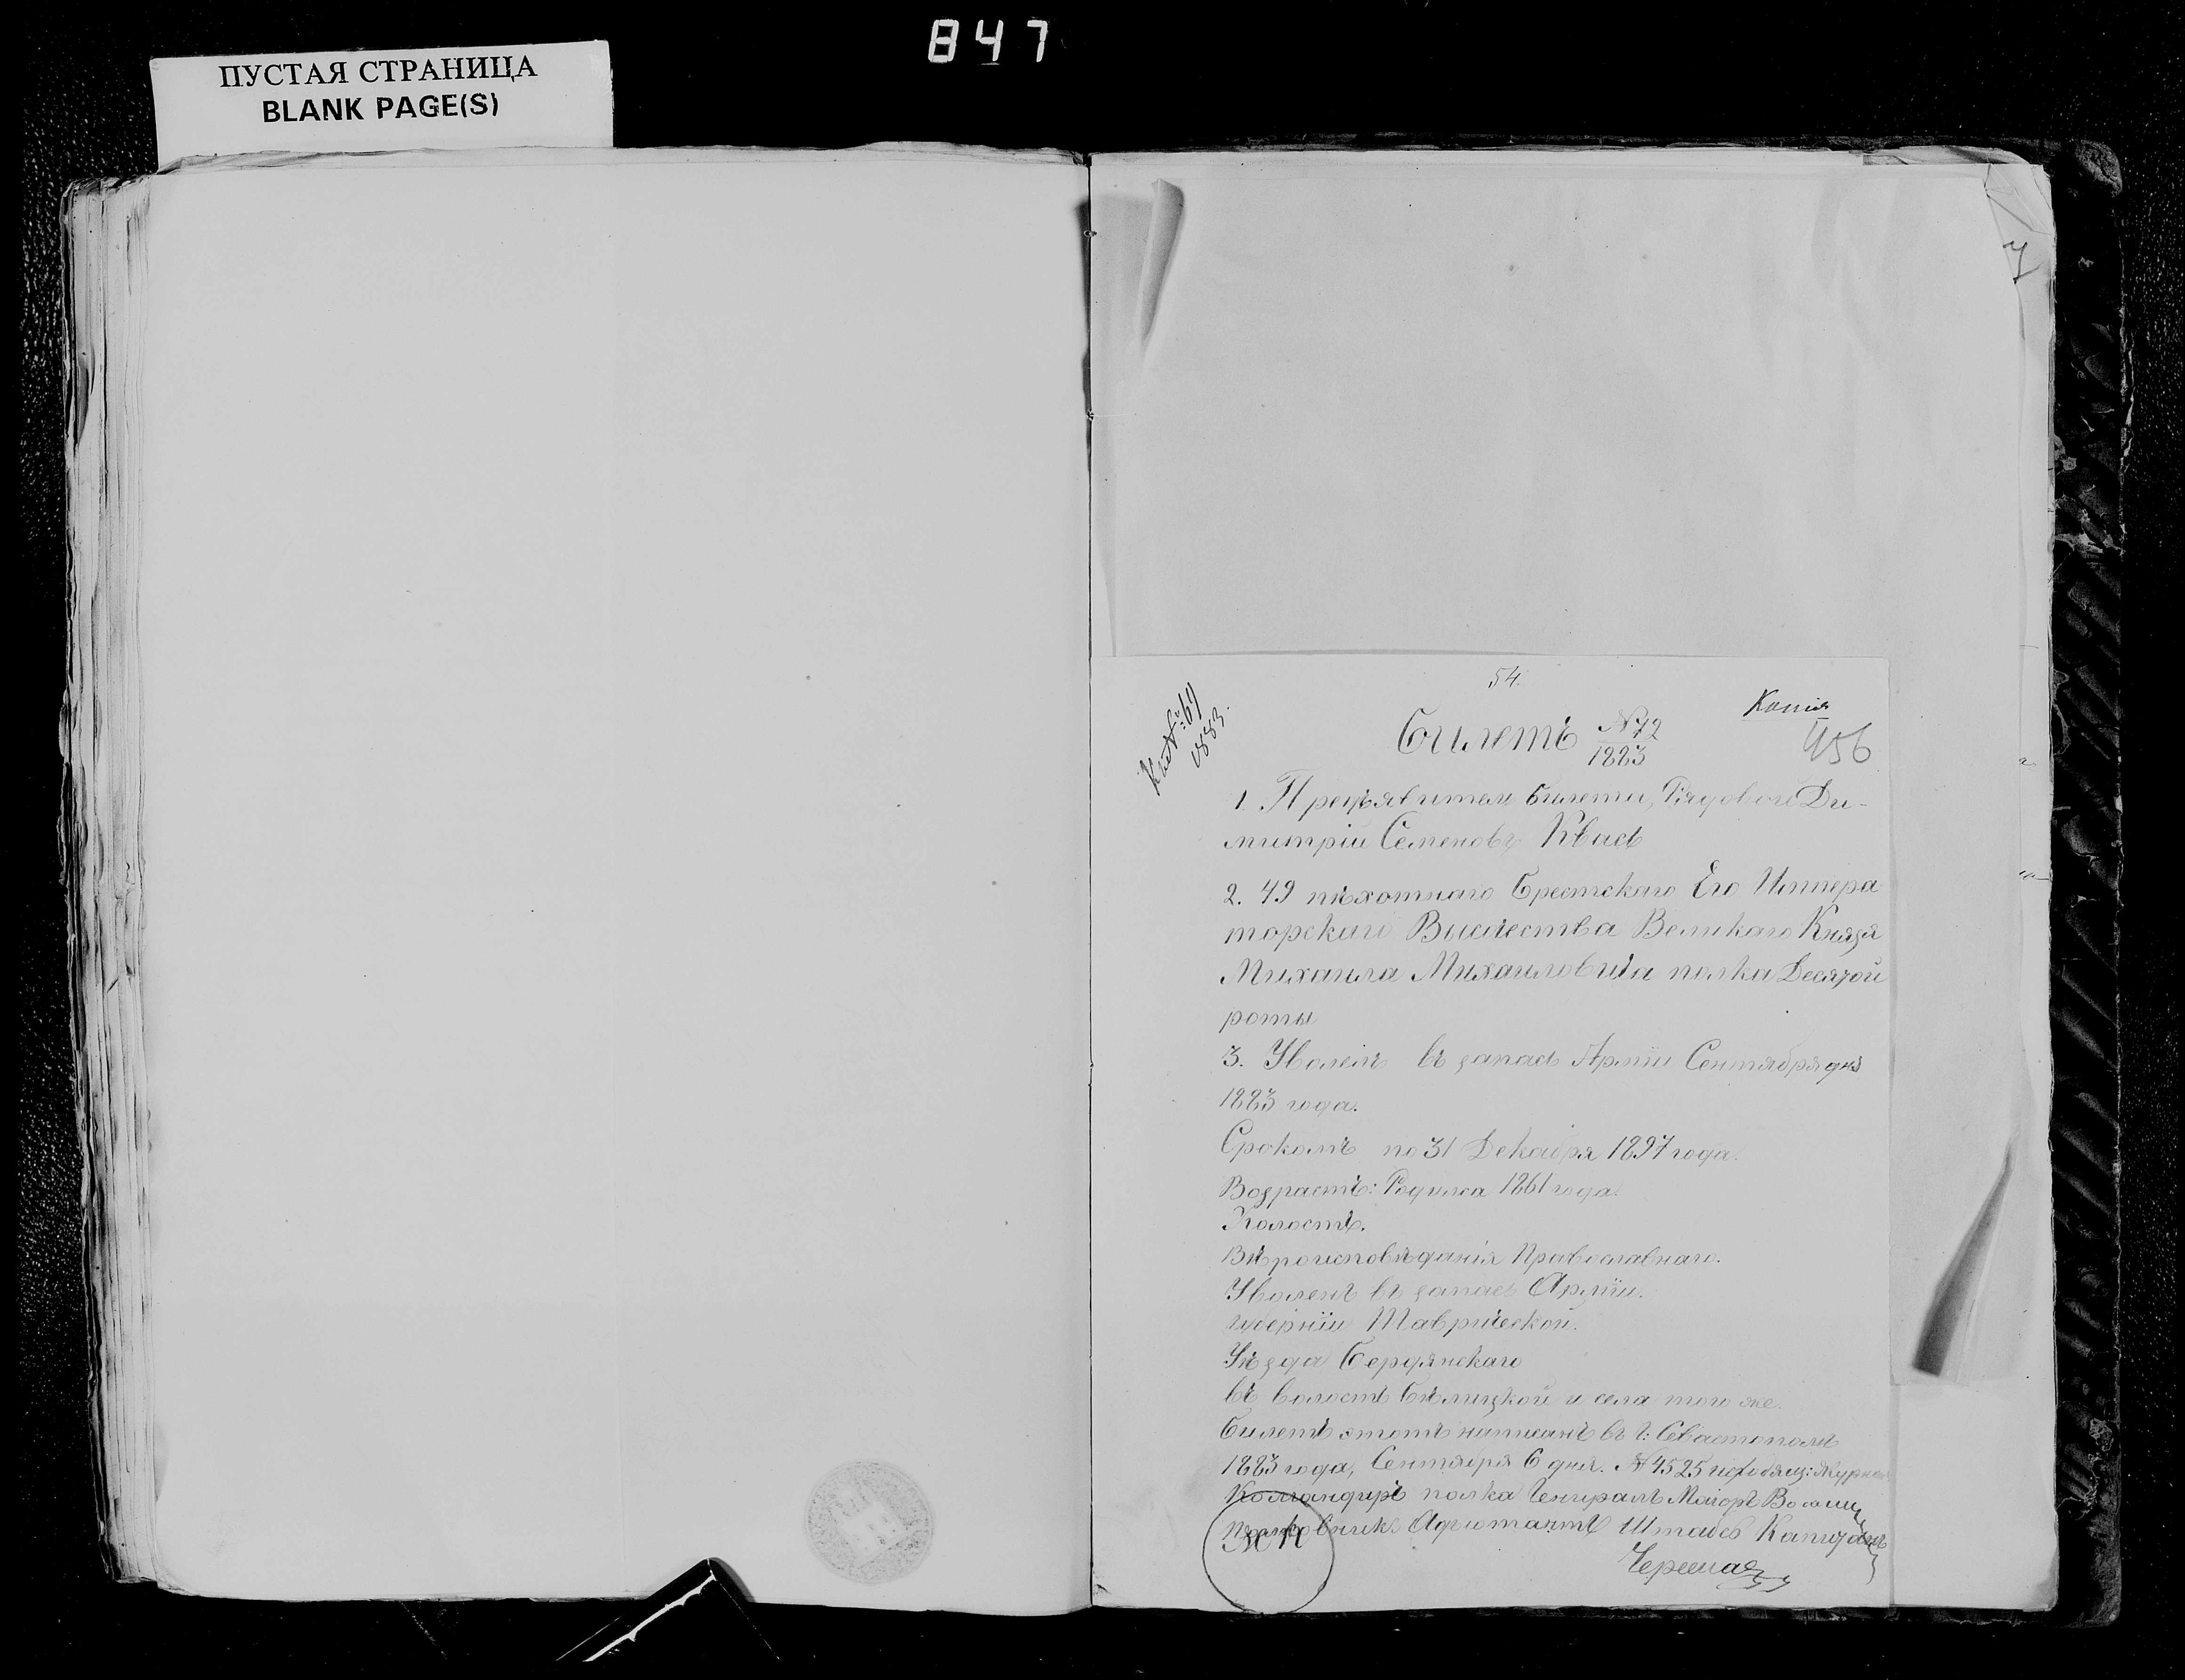 847
ПУСТАЯ СТРАНИЦА
BLANK PAGE(S)
54.
Копія
Билетъ №72
1883
456
1. Предъявитель билета, Рядовой Ди-
митрій Семеновъ Квасъ
2. 49 пѣхотнаго Брестскаго Его Импера
торскаго Высочества Великаго Князя
Михаила Михаиловича полка Десятой
роты
3. Уволенъ въ запасъ Арміи Сентября дня
1883 года.
Срокомъ по 31 Декабря 1897 года.
Возрастъ: Родился 1861 года.
Холостъ.
Вѣроисповѣданія Православнаго.
Уволенъ въ запасъ Арміи.
губерніи Таврической.
Уѣзда Бердянскаго
въ волость и села того же.
Билетъ этотъ написанъ въ г: Севастополѣ
1883 года, Сентября 6 дня. №4525
Командиръ полка Генералъ Маіоръ
Адъютантъ Штабсъ Капитанъ
МП